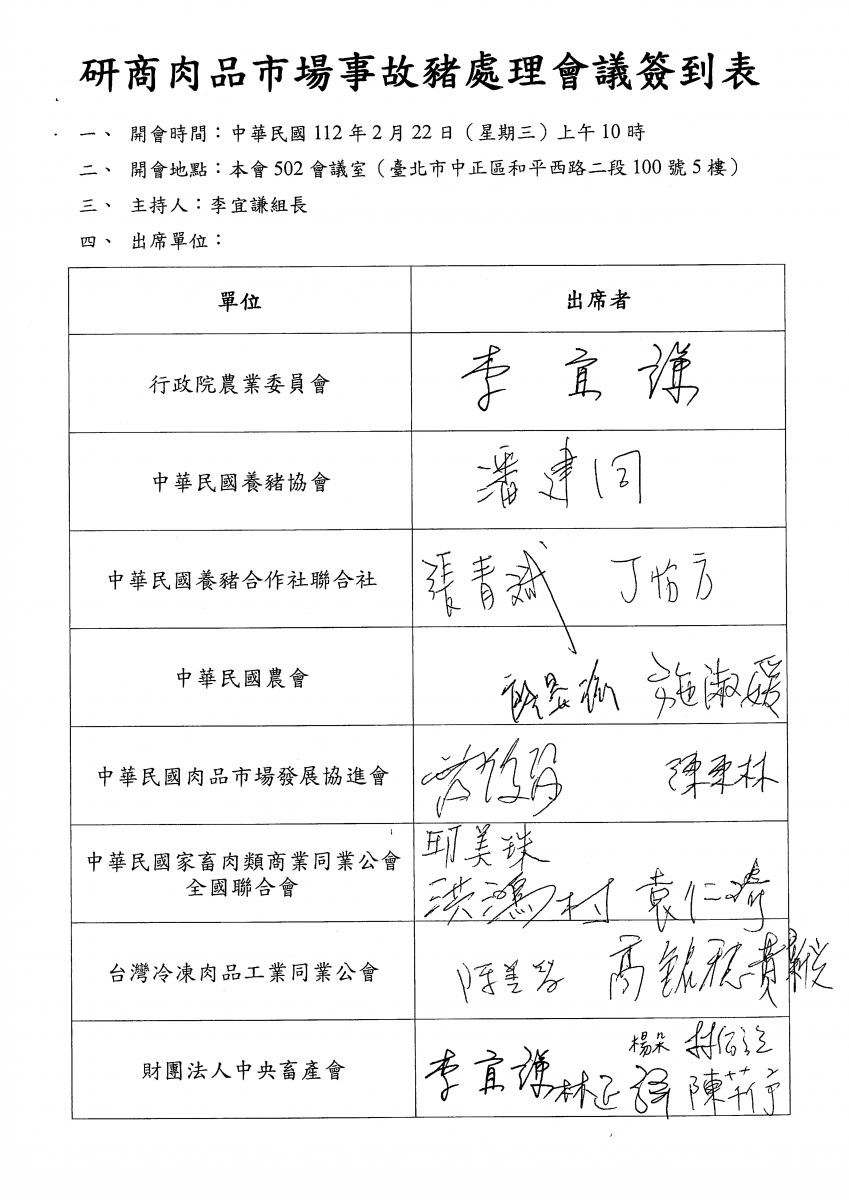 研商肉品市場事故豬處理會議簽到表
一、 開會時間：中華民國 112 年 2 月 22 日（星期三）上午 10 時
二、 開會地點：本會 502 會議室（臺北市中正區和平西路二段 100 號 5 樓）
三、 主持人：李宜謙組長
四、 出席單位：
單位 出席者
行政院農業委員會 李宜謙
中華民國養豬協會 潘建同
中華民國養豬合作社聯合社 張青斌 丁怡方
中華民國農會 施淑媛
中華民國肉品市場發展協進會 陳東林
邱美珠
中華民國家畜肉類商業同業公會
全國聯合會 洪鴻村 袁仁濤
台灣冷凍肉品工業同業公會 高銘聰
楊朵
財團法人中央畜產會 李宜謙 林正